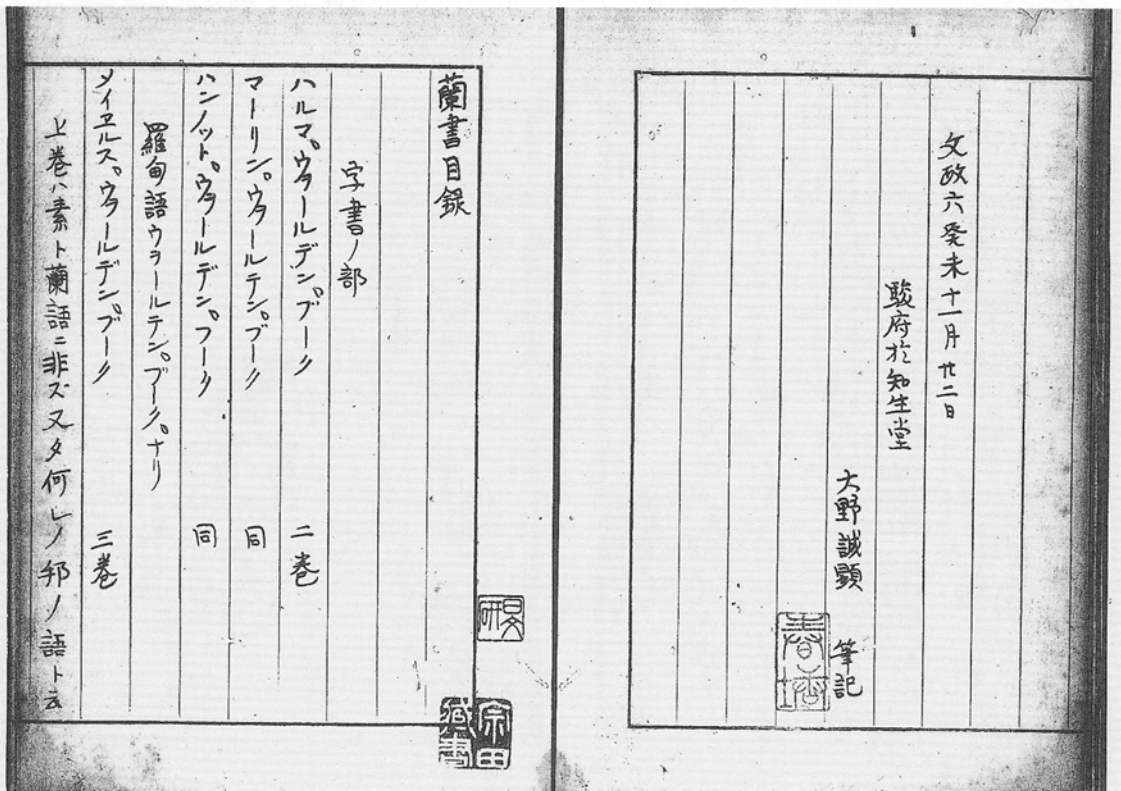 文政六癸未十一月廿二日
駿府於知生堂
大野誠顕 筆記
蘭書目録
字書ノ部
ハルマ、ウヲールデン。ブーク 二巻
マートリン。ウヲールテン。ブーク 同
ハンノット。ウヲールデン。フーク 同
羅甸語ウヲールテン。ブーク。ナリ
メイヱルス。ウヲールデン。ブーク 三巻
上巻ハ素ト蘭語ニ非ズ又タ何レノ邦ノ語ト云
宗田
蔵書